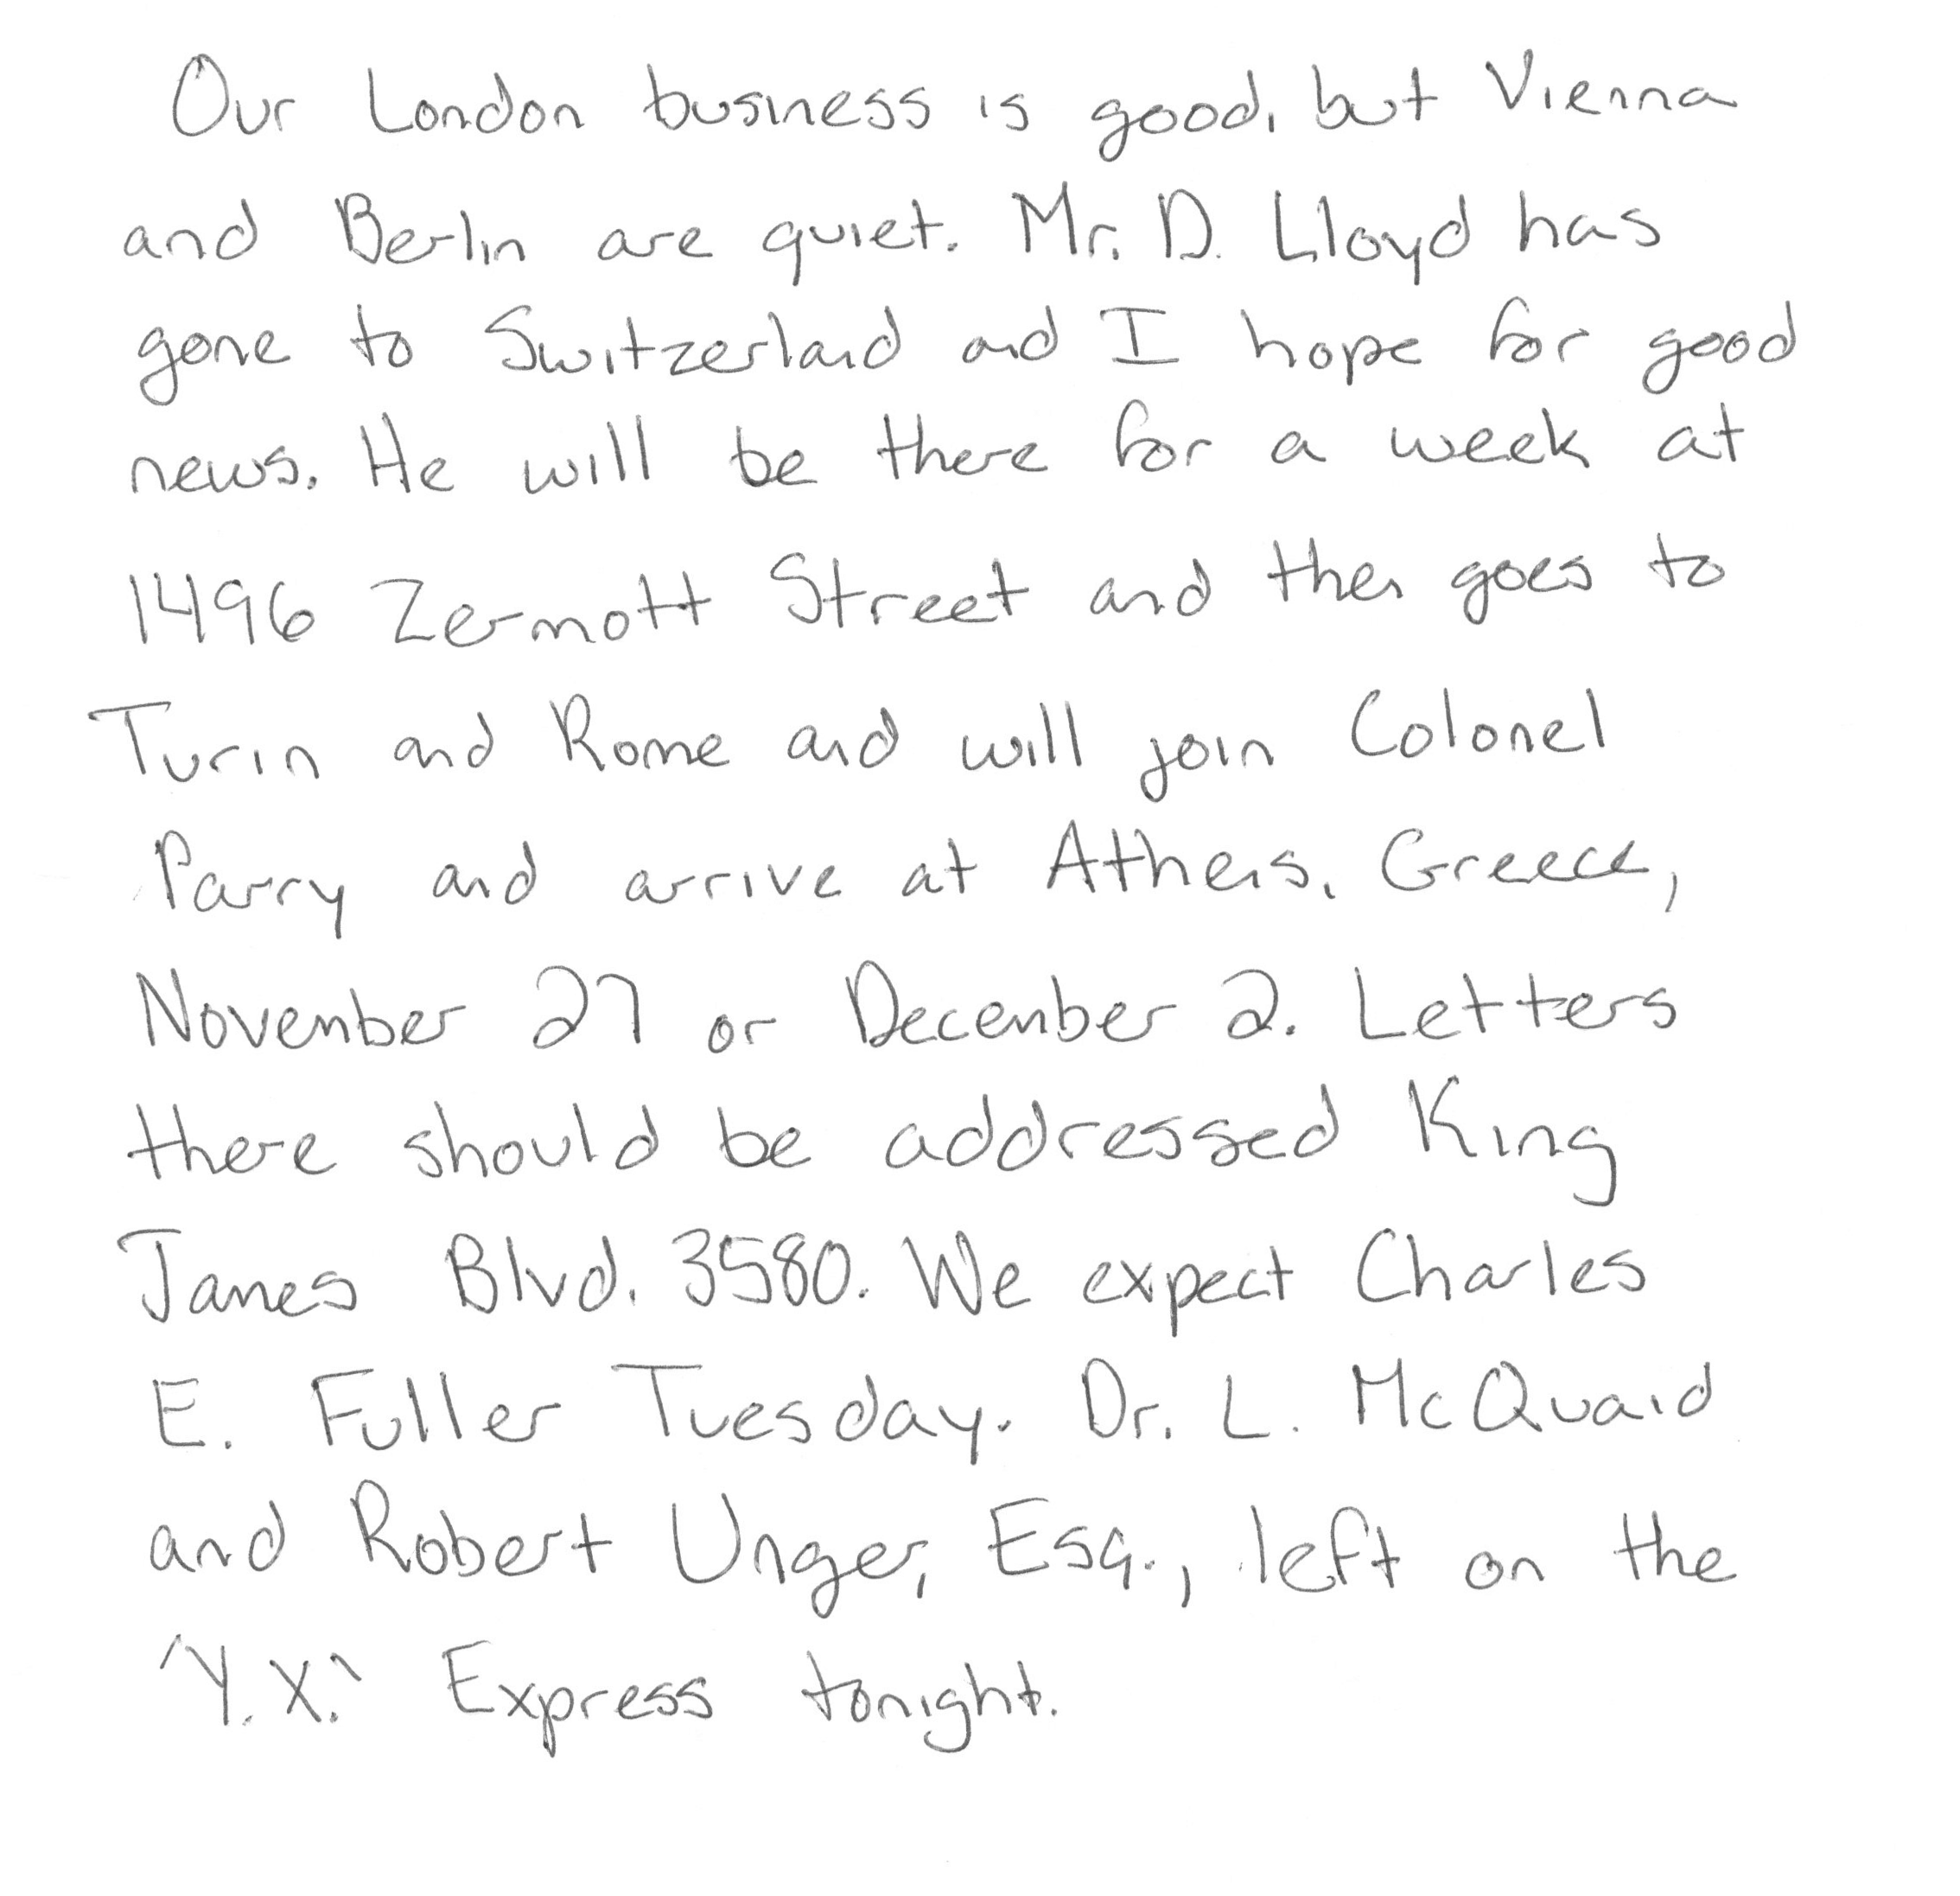 Our London business is good, but Vienna
and Berlin are quiet. Mr. D. Lloyd has
gone to Switzerland and I hope for good
news. He will be there for a week at
1496 Zermott Street and then goes to
Turin and Rome and will join Colonel
Parry and arrive at Athens, Greece,
November 27 or December 2. Letters
there should be addressed King
James Blvd. 3580. We expect Charles
E. Fuller Tuesday. Dr. L. McQuaid
and Robert Unger, Esq., left on the
'Y.X.' Express tonight.